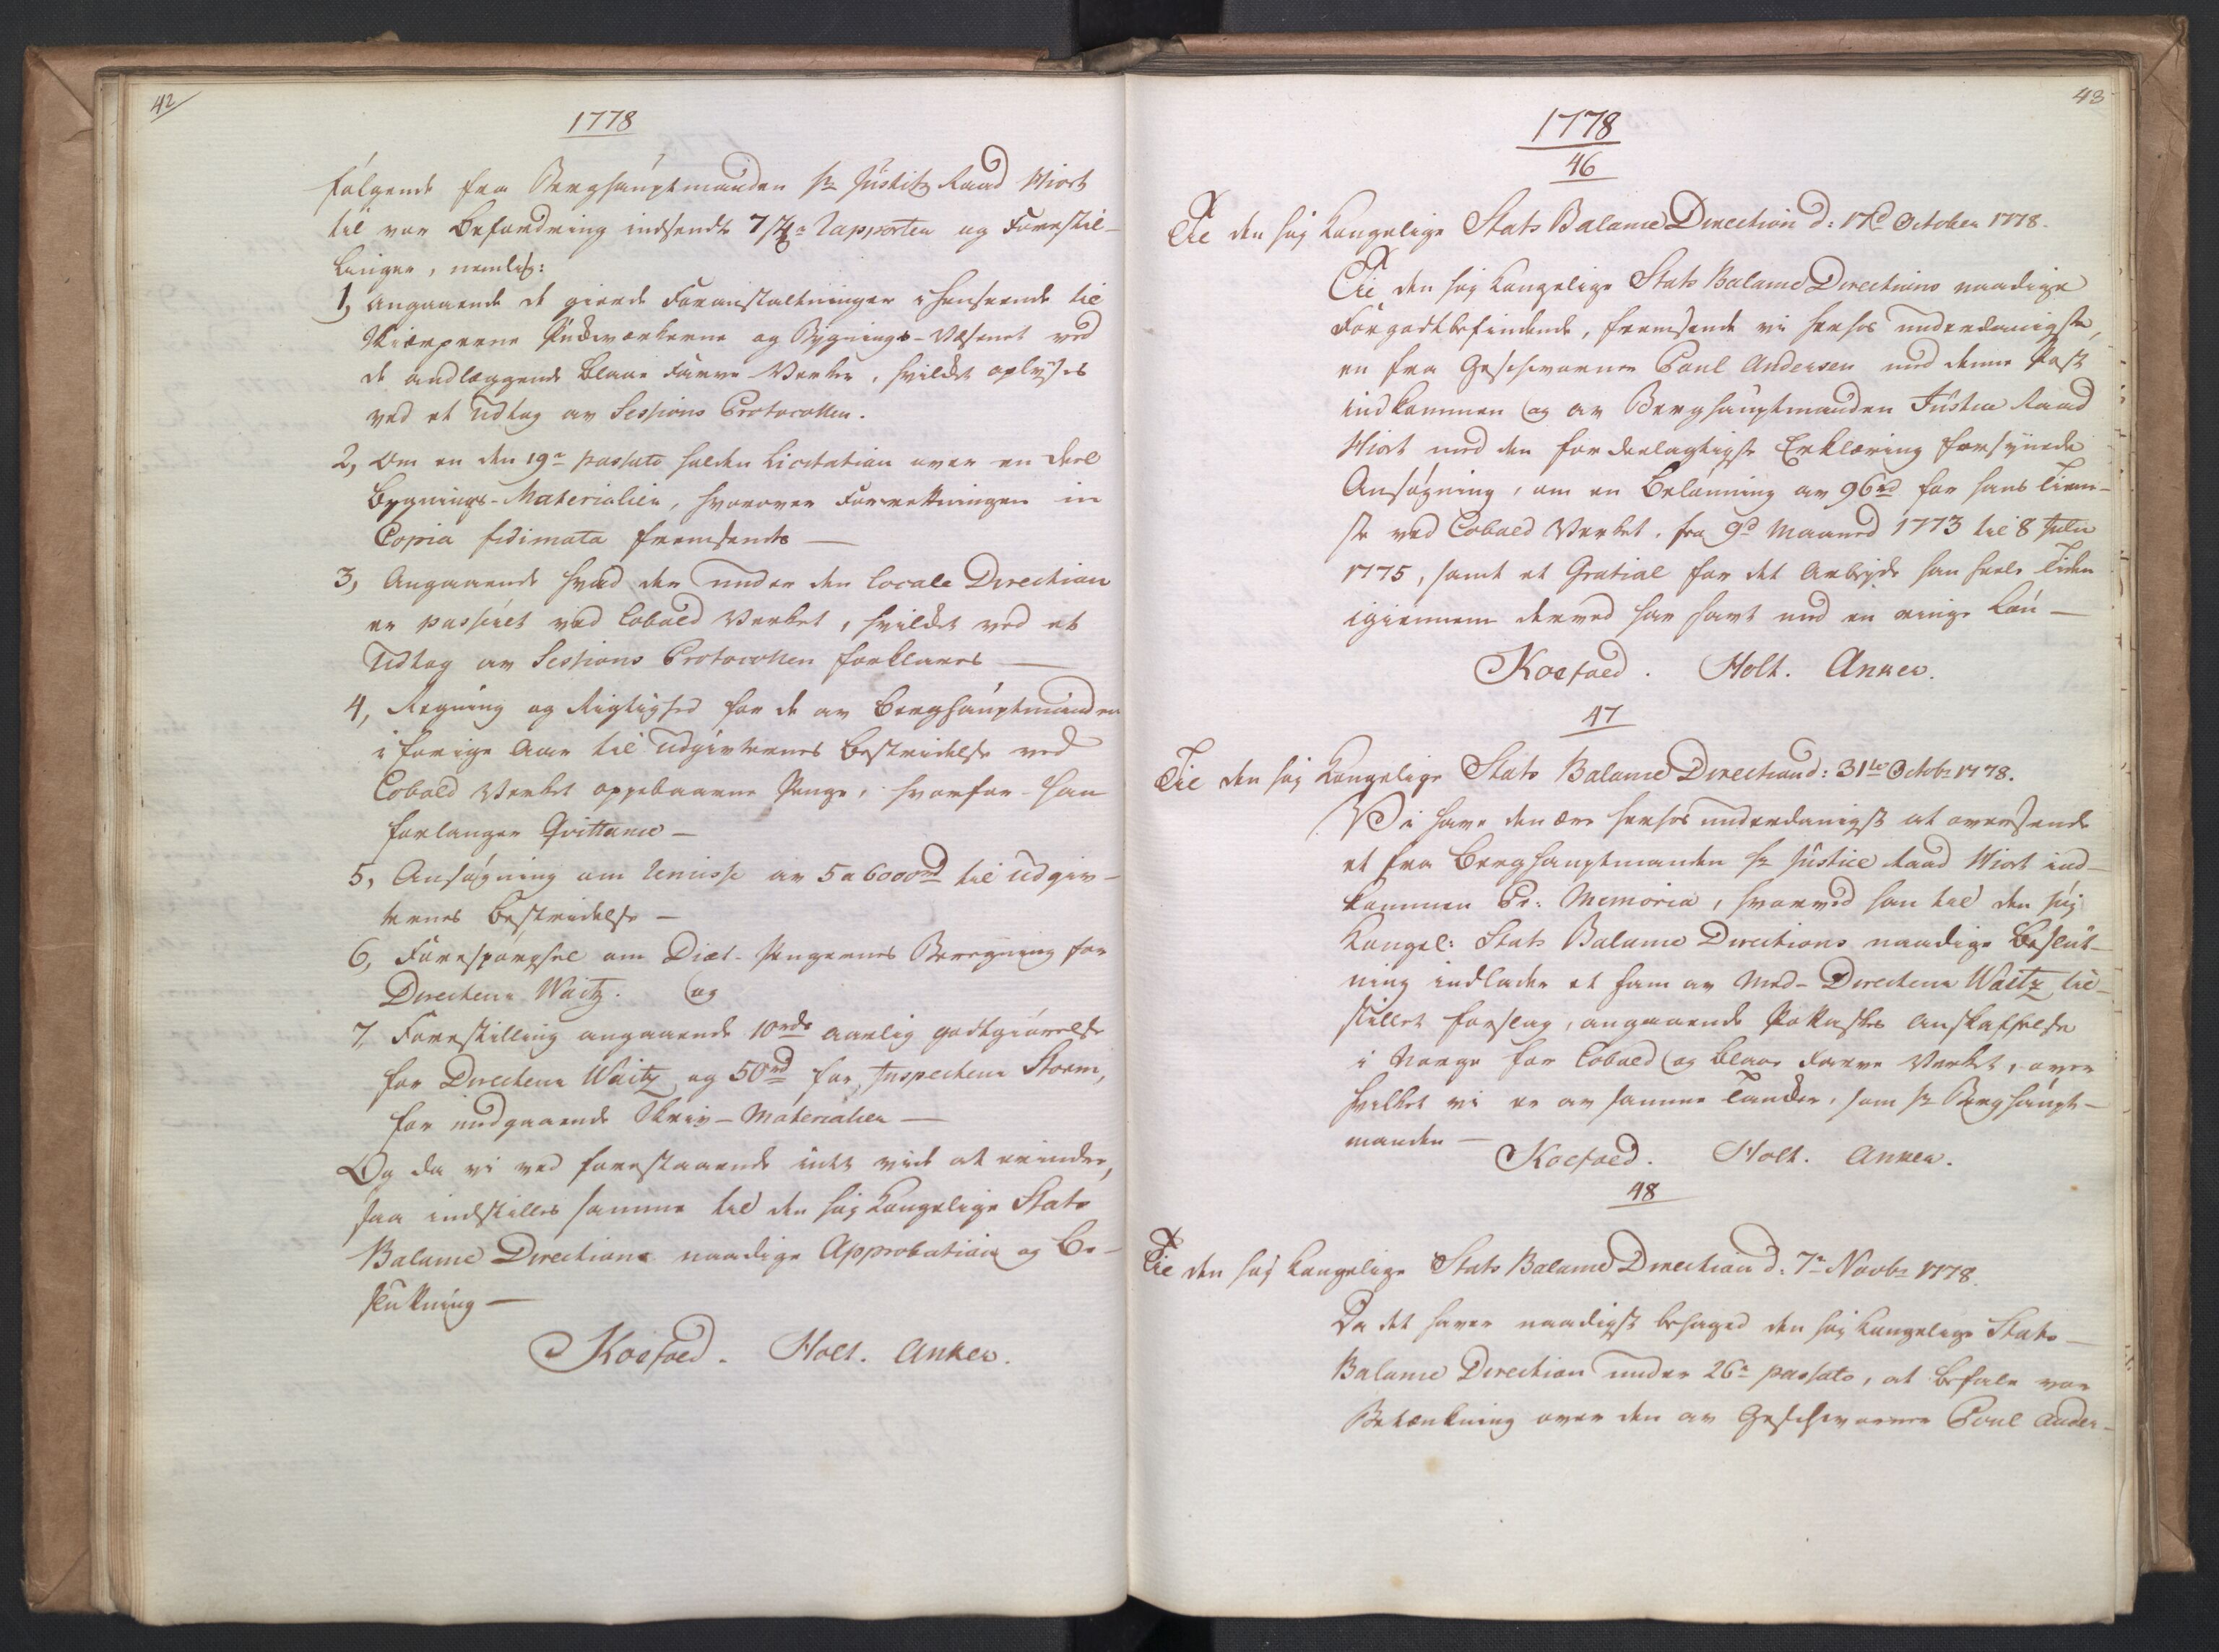 42
1778
følgende fra Berghauptmanden Hr Justitz Raad Hiort
til vor Befordring indsendte 7 Rapporter og Forestil-
linger, nemlig:
1, Angaaende de giorde Foranstaltninger i Henseende til
Skierperne Pudsværkerne og Bygnings-Væsenet ved
de andlæggende Blaae Farve Verker, hvilket oplyses
ved et Udtog av Sessions Protocollen.
2, Om en den 19de passato holden Licitation over en Deel
Bygnings-Materialier, hvorover Forretningen in
Copia fidimata fremsendes —
3, Angaaende hvad der under den locale Direction
er passeret ved Cobold Verket, hvilket ved et
Udtog av Sessions Protocollen forklares —
4, Regning og Rigtighed for de av Berghauptmanden
i forige Aar til Udgivternes Bestridelse ved
Cobold Verket oppebaarne Penge, hvorfor han
forlanger Qvittance —
5, Ansøgning om Remisse av 5 a 6000 rd til Udgiv-
ternes Bestridelse —
6, Forespørgsel om Diæt-Pengernes Beregning for
Directeur Waitz. og
7, Forestilling angaaende 10 rds aarlig godtgiørelse
for Directeur Waitz og 50 rd for Inspecteur Storm,
for medgaaende Skriv-Materialier —
Og da vi ved forestaaende intet vide at erindre,
saa indstilles samme til den høj Kongelige Stats
Balance Directions naadige Approbation og Be-
slutning —
Koefoed. Holt. Anker.
43
1778
46
Til den høj Kongelige Stats Balance Direction d: 17d October 1778.
Til den høj Kongelige Stats Balance Directions naadige
Forgodtbefindende, fremsende vi herhos underdanigste,
en fra Geschworner Poul Andersen med denne Post
indkommen og av Berghauptmanden Justice Raad
Hiort med den fordeelagtigste Erklæring forsynede
Ansøgning, om en Belønning av 96 rd for hans Tiene-
ste ved Cobold Verket, fra 9d Maaned 1773 til 8 Julii
1775, samt et Gratial for det Arbejde han heele Tiden
igiennem derved har havt med en ringe Løn —
Koefoed. Holt. Anker.
47
Til den høj Kongelige Stats Balance Direction d: 31te Octobr 1778.
Vi have den ære herhos underdanigst at oversende
et fra Berghauptmanden Hr Justice Raad Hiort ind-
kommen Pr: Memoria, hvorved han til den høj
Kongel: Stats Balance Directions naadige Beslut-
ning indlader et ham av Med-Directeur Waitz til-
stillet forslag, angaaende Pottaskes Anskaffelse
i Norge for Cobold og Blaae Farve Verket, over
hvilket vi er av samme Tanker, som Hr Berghaupt-
manden —
Koefoed. Holt. Anker.
48
Til den høj Kongelige Stats Balance Direction d. 7de Novbr 1778.
Da det haver naadigst behaged den høj Kongelige Stats
Balance Direction under 26de passato, at befale vor
Betænkning over den av Geschworner Poul Ander-